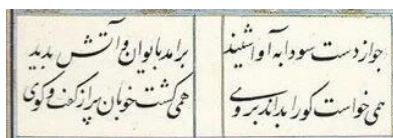 جو از دست سودابه آوا شنید برآمد بایوان و آتش بدید
همی خواست کو را بد آید بروی همی گشت پر از گفت و گوی